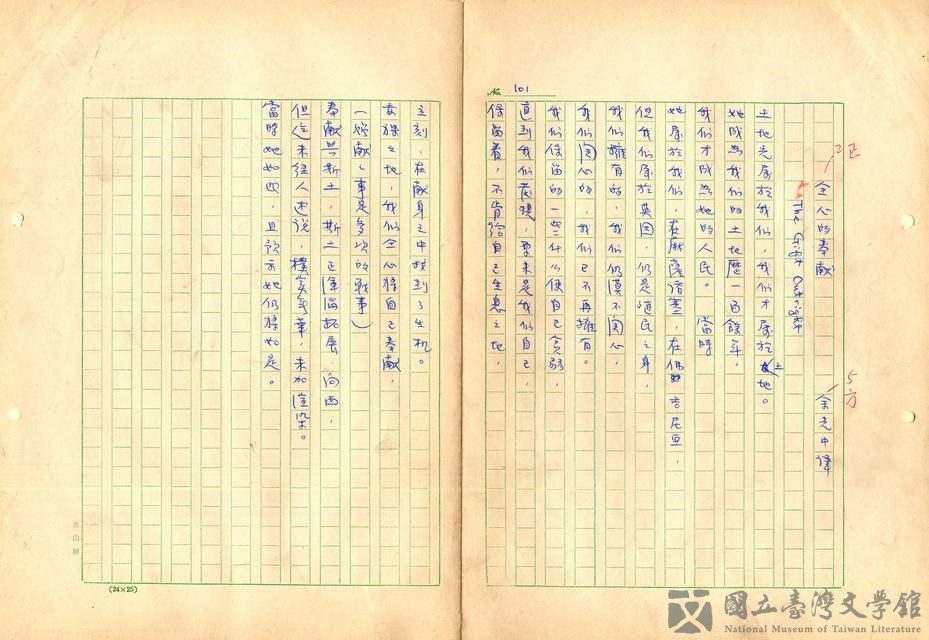 No. 101
2正
全心的奉献
The Gift Outright
5方
余光中譯
土地先屬於我們,我們才屬於土地。
她成為我們的土地歷一百餘年,
我們才成為她的人民。當時
她屬於我們,在麻薩諸塞,在佛吉尼亞,
但我們屬於英国,仍是殖民之身,
我們擁有的,我們仍漠不関心,
我們関心的,我們已不再擁有。
我們保留的一些什么使自己貧弱,
直到我們發現,原來是我們自己,
保留着,不肯給自己生息之地,
立刻,在献身之中找到了生机。
我們全心將自己奉献,
(奉献之事是多次的戰事)
奉献與斯土,斯土正渾淪拓展,向西,
但迄未經人述說,樸實無華,未加渲染,
當時她如此,且預示她仍將如是。
金山牌
(24×25)
國立臺灣文學館
National Museum of Taiwan Literature